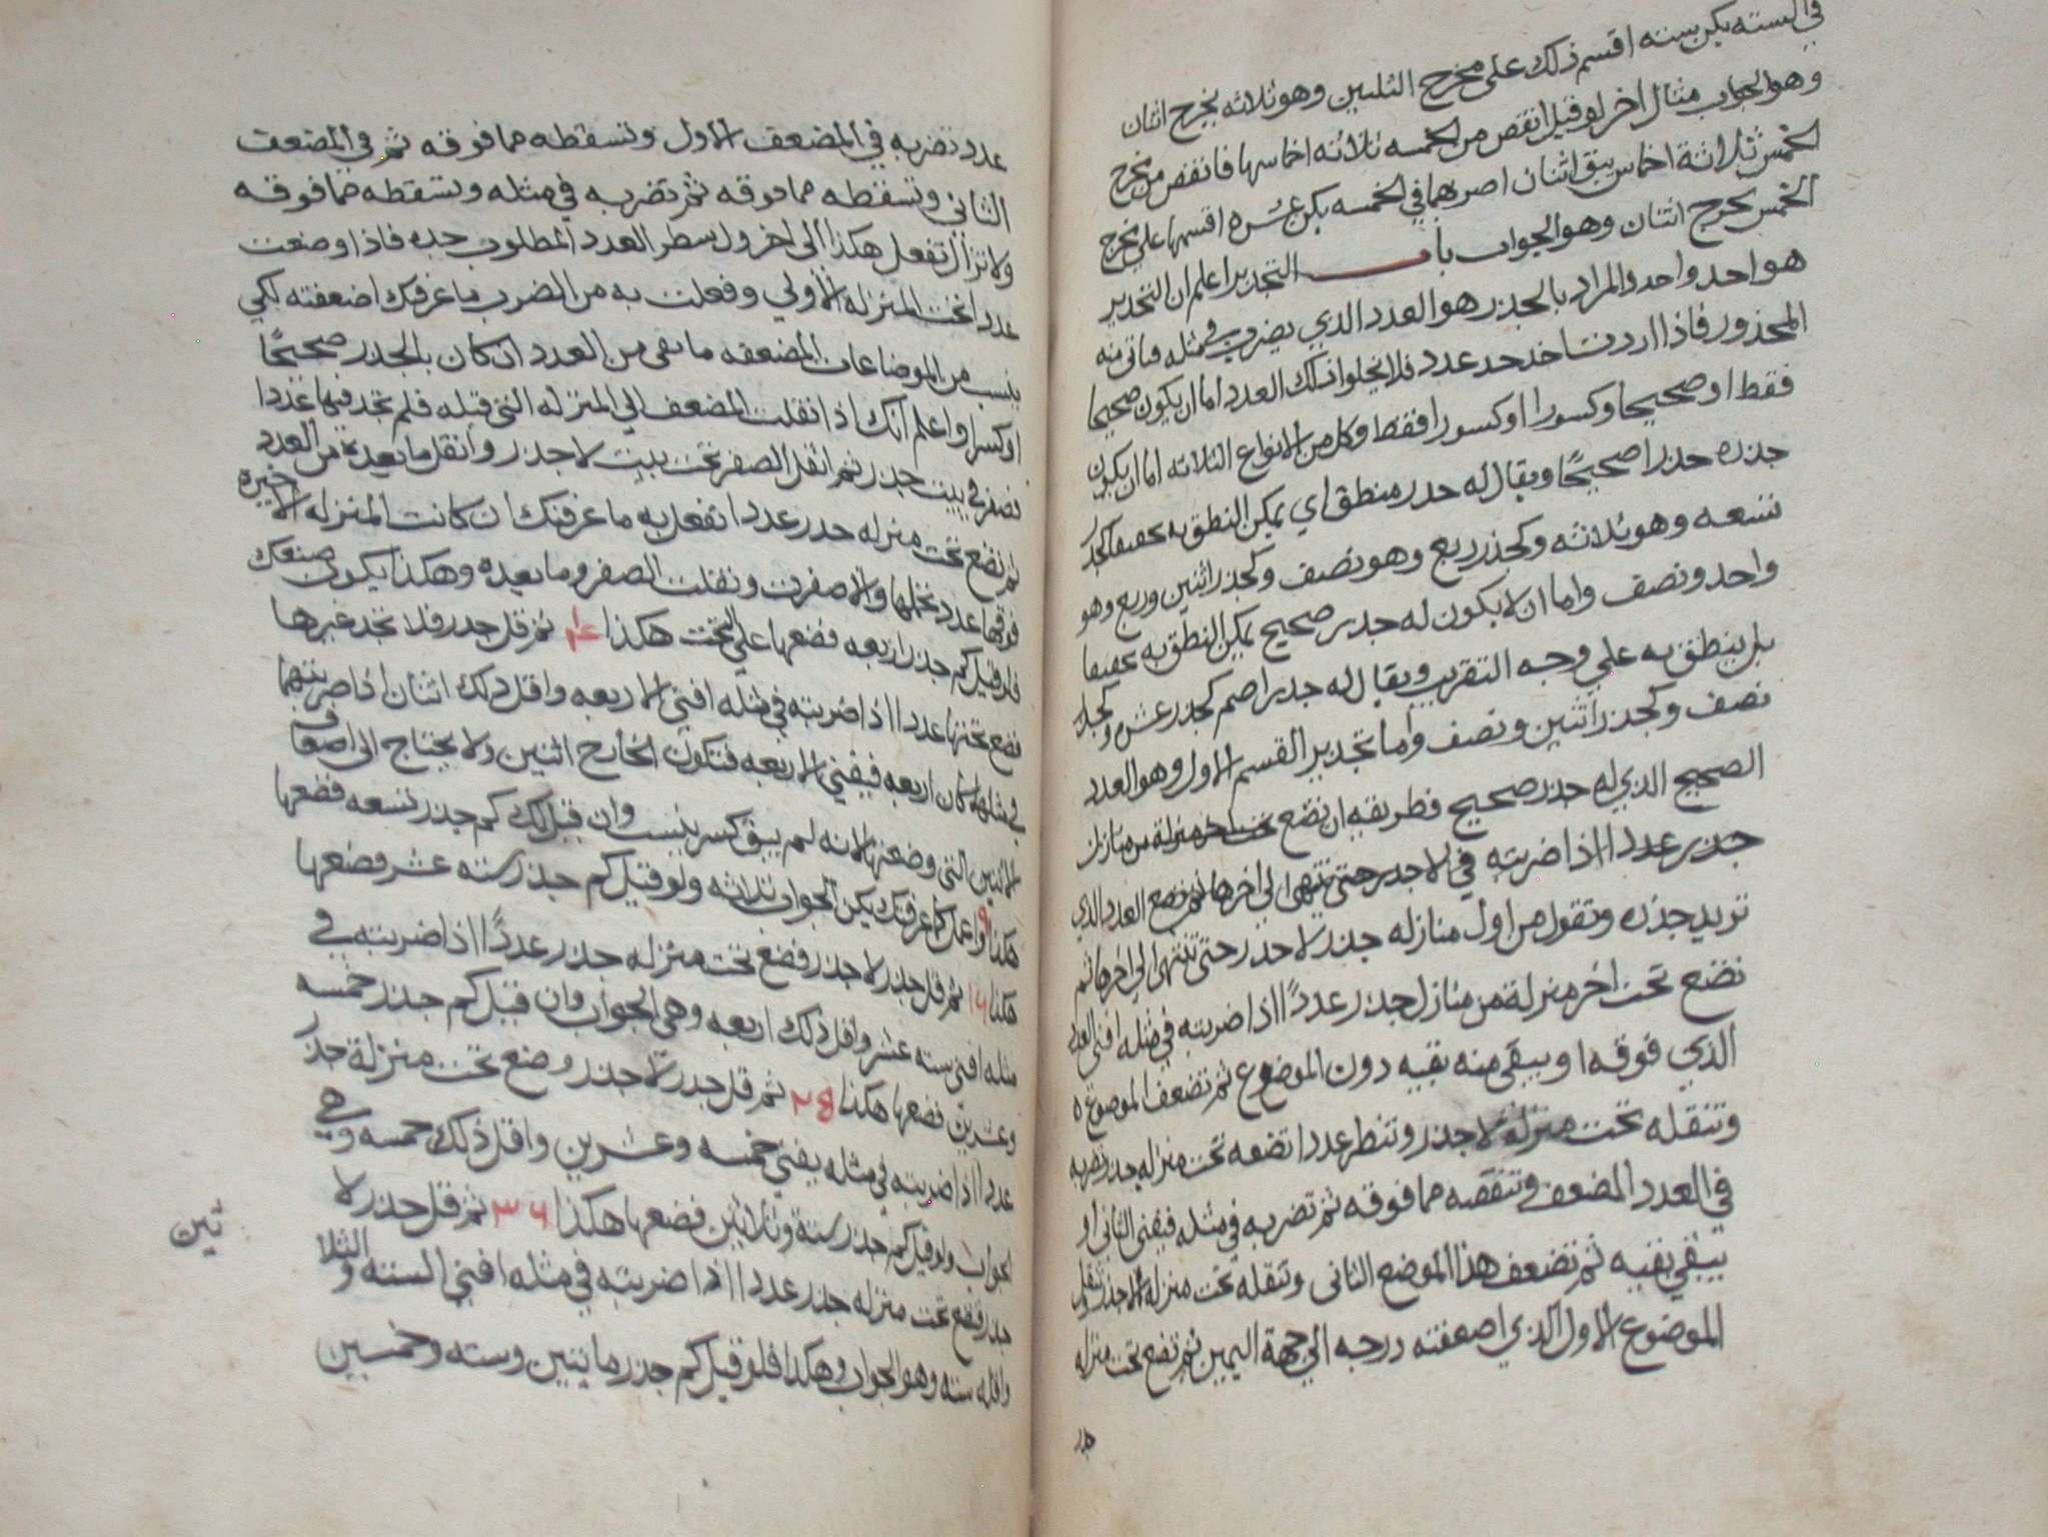 في السته يكن بسته اقسم ذلك على مخرج الثلثين وهو ثلاثه يخرج اثنان
وهو الجواب مثال اخر لو قيل انقص من الخمسه ثلاثه اخماسها فانقص من مخرج
الخمس ثلاثة اخماس يبق اثنان اضربهما في الخمسه يكن عشره اقسمها على مخرج
الخمس يخرج اثنان وهو الجواب باب التجدير اعلم ان التجدير
هو احد واحد والمراد بالجذر هو العدد الذي يضرب في مثله فياتي منه
المجذور فاذا اردت اخذ جذر عدد فلا يخلوا ذلك العدد اما ان يكون صحيحا
فقط او صحيحا وكسورا او كسورا فقط وكل من الانواع الثلاثه اما ان يكون
جذره جذرا صحيحًا ويقال له جدر منطق اي يمكن النطق به تحقيقا كجذر
تسعه وهو ثلاثه وكجذر ربع وهو نصف وكجذر اثنين وربع وهو
واحد ونصف واما ان لا يكون له جدر صحيح يمكن النطق به تحقيقا
بل ينطق به علي وجه التقريب ويقال له جدر اصم كجدر عشره وكجذر
نصف وكجذر اثنين ونصف واما تجدير القسم الاول وهو العدد
الصحيح الذي له جذر صحيح فطريقه ان تضع تحت اخر منزلة من منازل
جذر عددا اذا ضربته في لا جدر حتى تنتهي الى اخرها ثم تضع العدد الذي
تريد جذره وتقول من اول منازله جذر لا جذر حتى تنتهي الى اخرها ثم
تضع تحت اخر منزلة من منازل جذر عددًا اذا ضربته في مثله افنى العدد
الذي فوقه او يبقى منه بقيه دون الموضوع ثم تضعف الموضوع
وتنقله تحت منزلة لا جذر وتنظر عددا تضعه تحت منزله جدر وتضربه
في العدد المضعف وتنقصه مما فوقه ثم تضربه في مثله فيفنى الثاني او
تبقي بقيه ثم تضعف هذا الموضع الثانى وتنقله تحت منزلة لا جذر وتنقل
الموضوع الاول الذي اضعفته درجه الي جهة اليمين ثم تضع تحت منزله
عدد تضربه في المضعف الاول وتسقطه مما فوقه ثم في المضعف
الثاني وتسقطه مما فوقه ثم تضربه في مثله وتسقطه مما فوقه
ولا تزال تفعل هكذا الى اخر ول سطر العدد المطلوب جدره فاذا وضعت
عددا تحت المنزله الاولي وفعلت به من الضرب ما عرفتك اضعفته لكي
ينسب من الموضاعات المضعفه ما بقى من العدد ان كان بالجذر صحيحًا
او كسرا واعلم انك اذا نقلت المضعف الي المنزله التى قبله فلم تجد فيها عددا
فصفر في بيت جدر ثم انقل الصفر تحت بيت لا جذر وانقل ما بعده من العدد
ثم تضع تحت منزله جدر عددا تفعل به ما عرفتك ان كانت المنزله الاخيره
فوقها عدد تحتها والا صفرت ونقلت الصفر وما بعده وهكذا يكون صنعك
فلو قيل كم جذر اربعه فضعها علي التخت هكذا ٤ ثم قل جدر فلا تجد غيرها
فضع تحتها عددا اذا ضربته في مثله افنى الاربعه واقل ذلك اثنان اذا ضربتهما
في مثلهما كان اربعه فيفني الاربعه فتكون الخارج اثنين ولا يحتاج الى اضعاف
الاثنين التى وضعتها لانه لم يبق كسر ينسب وان قيل لك كم جذر تسعه فضعها
هكذا ٩ واعمل كما عرفتك يكن الجواب ثلاثه ولو قيل كم جذر سته عشر فضعها
هكذا ١٦ ثم قل جذر لا جذر فضع تحت منزله جدر عددًا اذا ضربته في
مثله افنى سته عشر واقل ذلك اربعه وهى الجواب وان قيل كم جذر خمسه
وعشرين فضعها هكذا ٢٥ ثم قل جدر لا جذر وضع تحت منزلة جذر
عددا اذا ضربته في مثله يفني خمسه وعشرين واقل ذلك خمسه وهي
الجواب ولو قيل كم جذر ستة وثلاثين فضعها هكذا ٣٦ ثم قل جذر لا
جذر فضع تحت منزله جدر عددا اذا ضربته في مثله افنى السته والثلا
ثين
واقله سته وهو الجواب وهكذا فلو قيل كم جذر مايتين وسته وخمسين